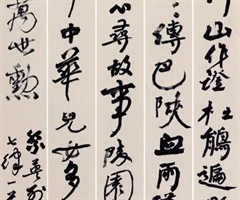 山作證杜鵑遍
縛巴陝血雨
心尋故事陵園
中華兒女多
萬世勲
英烈
七律一